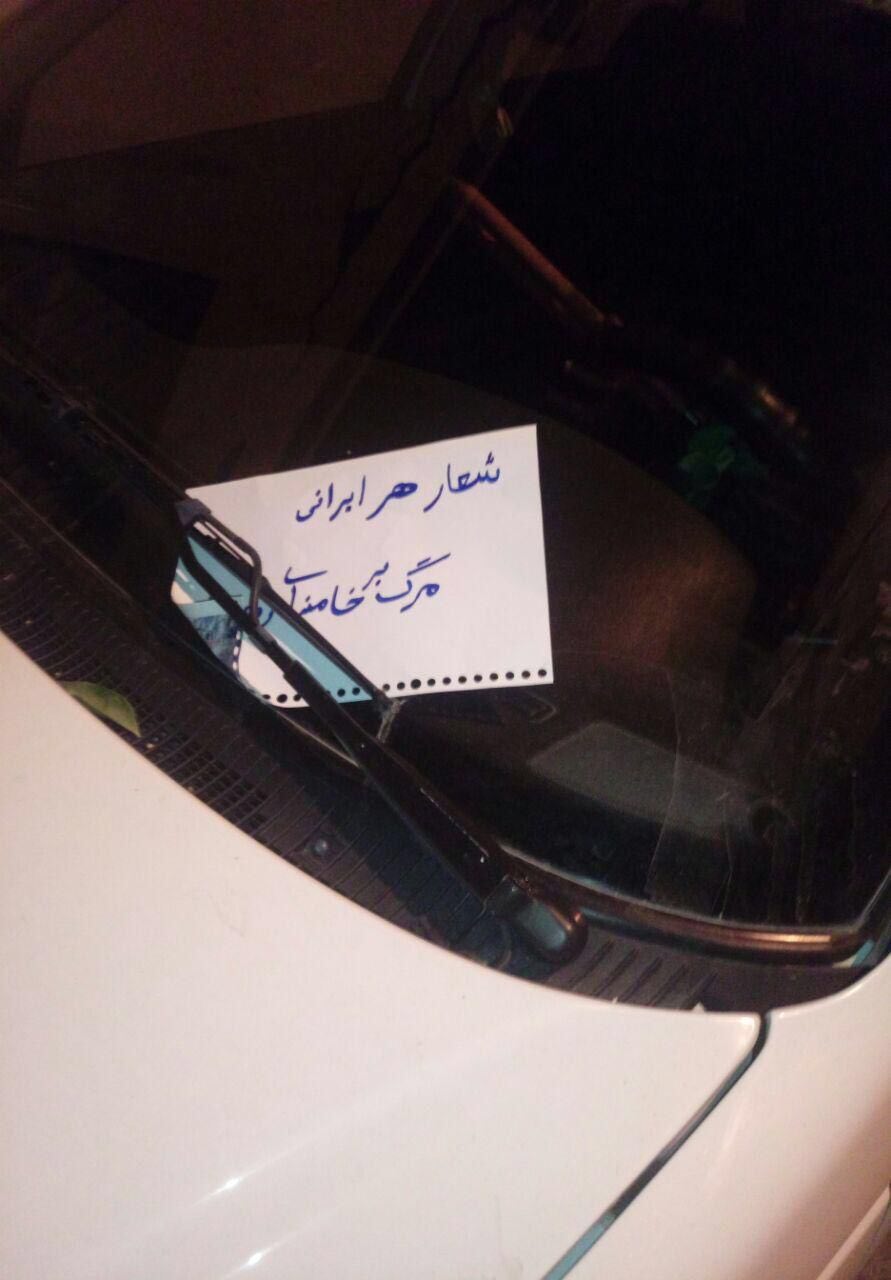 شعار هر ایرانی
مرگ بر خامنه‌ای